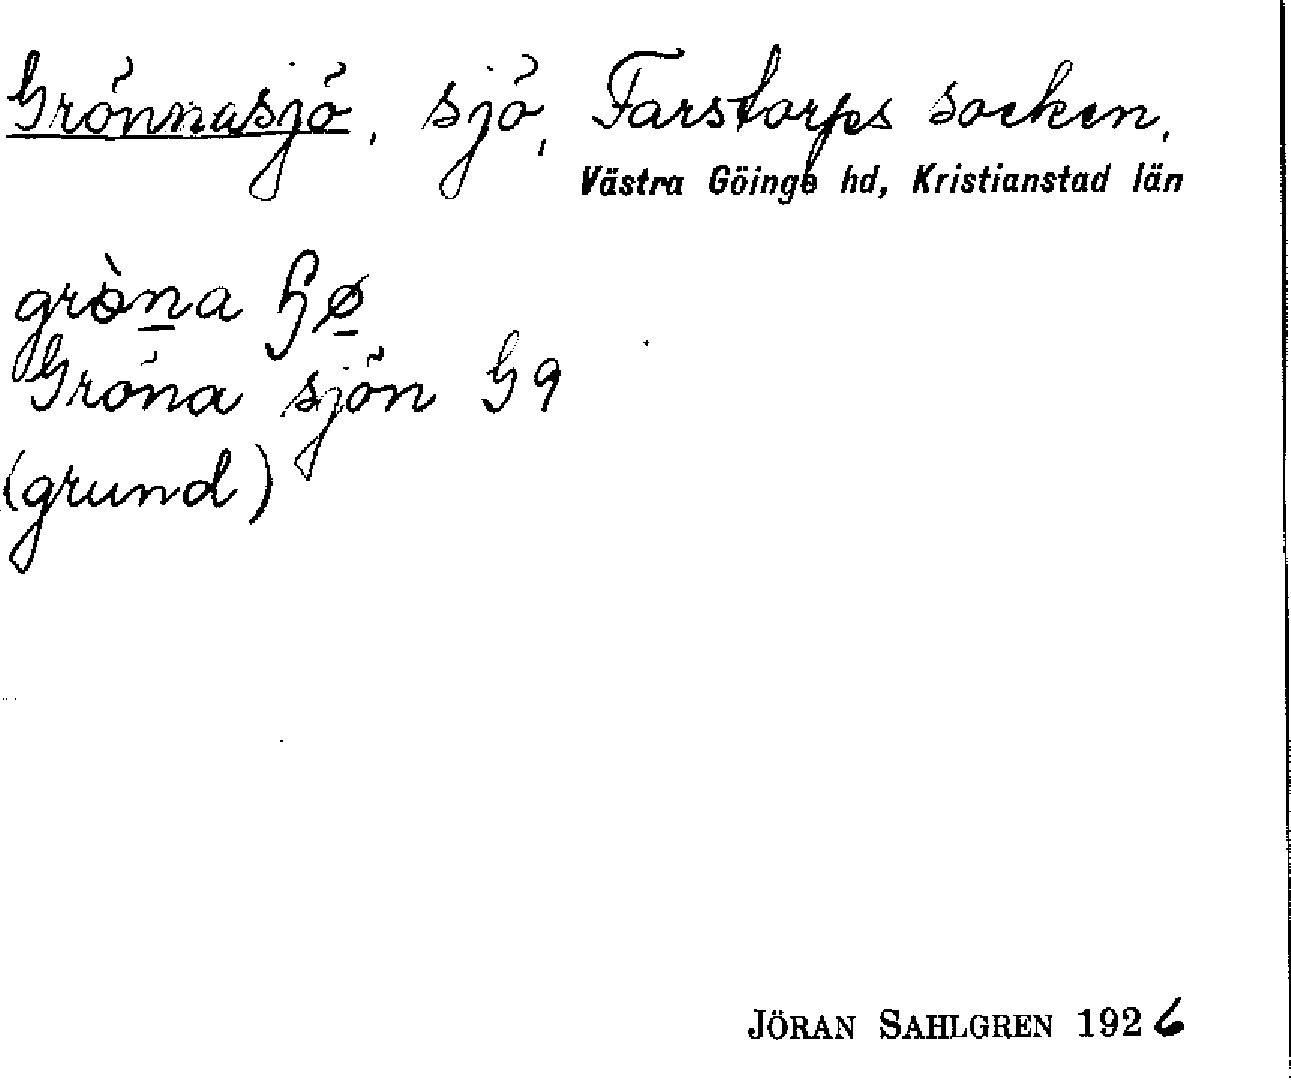 Grönnasjö, sjö, Farstorps socken,
Västra Göinge hd, Kristianstad län
grö̀n̲a ɧø̲
Gröna sjön G9
(grund)
JÖRAN SAHLGREN 1926